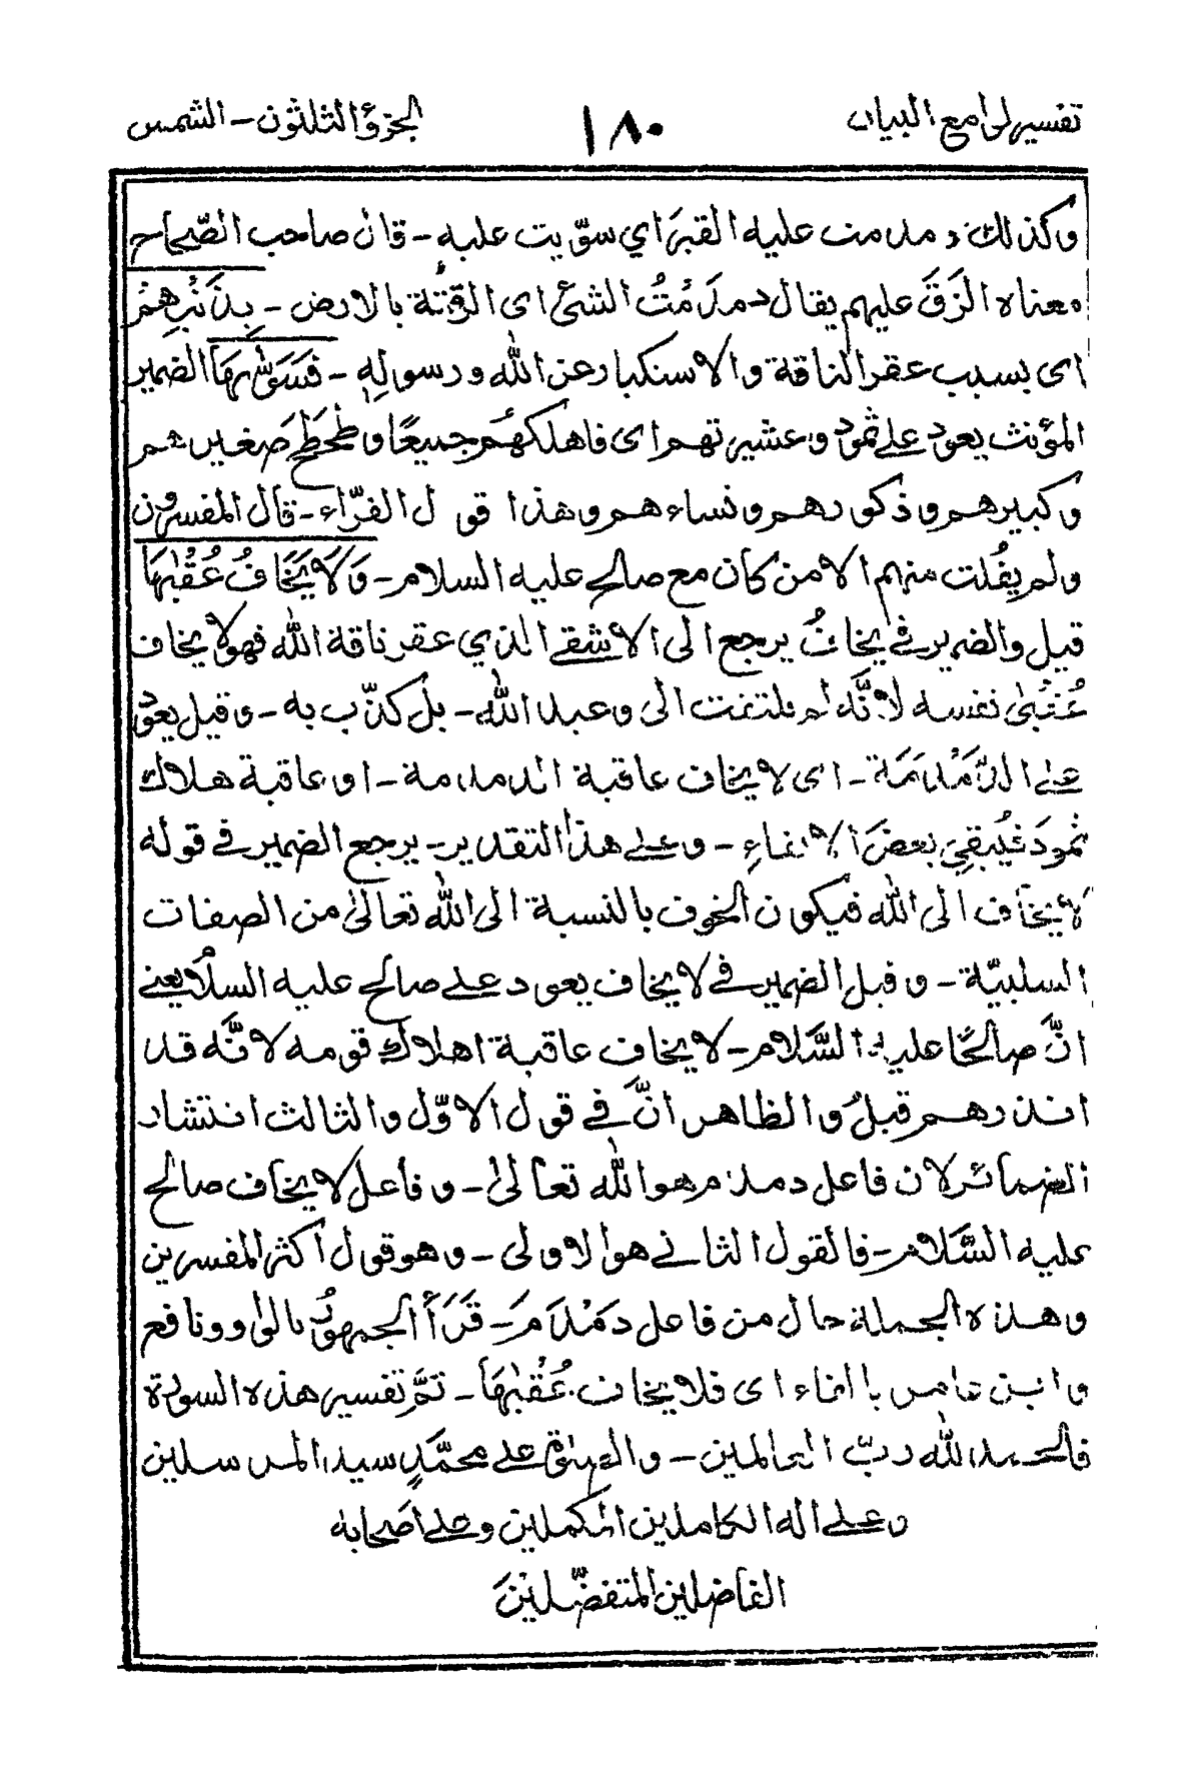 تفسير لوامع البيان ١٨٠ الجزؤ الثلثون - الشمس
وكذلك دمدمت عليه القبرَ اي سوّيت عليه - قال صاحب الصّحاح
معناه الزَقَ عليهم يقال دمدَمْتُ الشئ اى الزقتُه بالارض - بِذَنْبِهِمْ
اى بسبب عقر الناقة والاستكبار عن الله ورسولِهِ - فَسَوّٰىهَا الضمير
المؤنث يعود على ثمود وعشيرتهم اى فاهلكهُم جميعًا وطحطَحَ صغيرهم
وكبيرهم وذكورهم ونساءهم وهذا قول الفرّاء - قال المفسرون
ولم يفُلت منهم الا من كان مع صالح عليه السلام - وَلَا يَخَافُ عُقْبٰهَا
قيل والضمير في يخافُ يرجع الى الاشقے الذي عقر ناقة الله فهو لا يخاف
عُقبٰى نفسه لانَّه لم يلتفت الى وعيد الله - بل كذّب به - وقيل يعود
على الدَّمْدَمَة - اى لا يخاف عاقبة الدمدمة - او عاقبة هلاك
ثمودَ فيُبقِي بعضَ الابقاءِ - وعلى هذا التقدير - يرجع الضمير في قوله
لا يخاف الى الله فيكون الخوف بالنسبة الى الله تعالىٰ من الصفات
السلبيّة - وقيل الضمير في لا يخاف يعود على صالح عليه السلام يعنے
انَّ صالحًا عليه السَّلام - لا يخاف عاقبة اهلاك قومه لانَّه قد
انذرهم قبلُ والظاهر انَّ في قول الاوّل والثالث انتشار
الضمائر لان فاعل دمدم هو الله تعالىٰ - وفاعل لا يخاف صالح
عليه السَّلام - فالقول الثاني هو الاولى - وهو قول اكثر المفسرين
وهذه الجملة حال من فاعل دَمْدَمَ - قَرَأَ الجمهورُ بالواو ونافع
وابن عامر بالفاء اى فلا يخاف عُقْبٰهَا - تمَّ تفسير هذه السورة
فالحمد لله ربّ العالمين - والصلوٰة على محمَّدٍ سيد المرسلين
وعلى اله الكاملين المكملين وعلى اصحابه
الفاضلين المتفضّلينَ